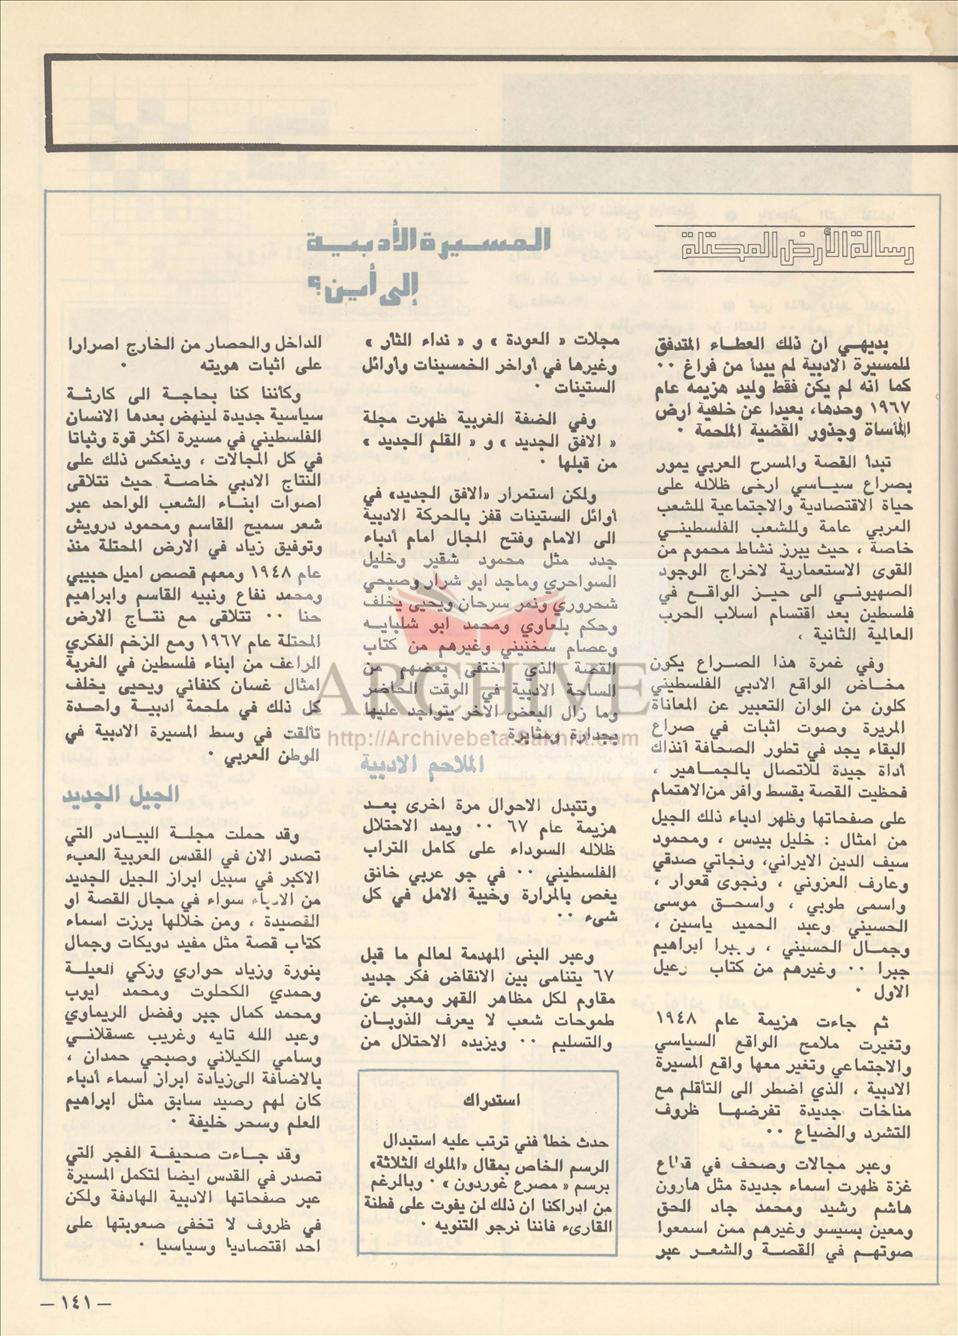 رسالة الأرض المحتلة
المسيرة الأدبية
إلى أين؟
بديهي ان ذلك العطاء المتدفق
للمسيرة الادبية لم يبدأ من فراغ ٠٠
كما انه لم يكن فقط وليد هزيمه عام
١٩٦٧ وحدها، بعيدا عن خلفية ارض
المأساة وجذور القضية الملحمة ٠
تبدأ القصة والمسرح العربي يمور
بصراع سياسي ارخى ظلاله على
حياة الاقتصادية والاجتماعية للشعب
العربي عامة وللشعب الفلسطيني
خاصة ، حيث يبرز نشاط محموم من
القوى الاستعمارية لاخراج الوجود
الصهيوني الى حيز الواقع في
فلسطين بعد اقتسام اسلاب الحرب
العالمية الثانية ،
وفي غمرة هذا الصراع يكون
مخاض الواقع الادبي الفلسطيني
كلون من الوان التعبير عن المعاناة
المريرة وصوت اثبات في صراع
البقاء يجد في تطور الصحافة آنذاك
أداة جيدة للاتصال بالجماهير ،
فحظيت القصة بقسط وافر من الاهتمام
على صفحاتها وظهر ادباء ذلك الجيل
من امثال : خليل بيدس ، ومحمود
سيف الدين الايراني، ونجاتي صدقي
وعارف العزوني ، ونجوى قعوار ،
واسمى طوبي ، واسحق موسى
الحسيني وعبد الحميد ياسين ،
وجمال الحسيني ، ابراهيم
جبرا ٠٠ وغيرهم من كتاب رعيل
الاول ٠
ثم جاءت هزيمة عام ١٩٤٨
وتغيرت ملامح الواقع السياسي
والاجتماعي وتغير معها واقع المسيرة
الادبية ، الذي اضطر الى التأقلم مع
مناخات جديدة تفرضها ظروف
التشرد والضياع ٠٠
وعبر مجالات وصحف في قطاع
غزة ظهرت اسماء جديدة مثل هارون
هاشم رشيد ومحمد جاد الحق
ومعين بسيسو وغيرهم ممن اسمعوا
صوتهم في القصة والشعر عبر
مجلات « العودة » و « نداء الثأر »
وغيرها في أواخر الخمسينات وأوائل
الستينات ٠
وفي الضفة الغربية ظهرت مجلة
« الافق الجديد » و « القلم الجديد »
من قبلها ٠
ولكن استمرار «الافق الجديد» في
أوائل الستينات قفز بالحركة الادبية
الى الامام وفتح المجال امام أدباء
جدد مثل محمود شقير وخليل
السواحري وماجد ابو شرار وصبحي
شحروري ونمر سرحان ويحيى يخلف
وحكم بلعاوي ومحمد ابو شلبايه
وعصام سخنيني وغيرهم من كتاب
القصة الذي اختفى بعضهم من
الساحة الادبية في الوقت الحاضر
وما زال البعض الاخر يتواجد عليها
بجدارة ومثابرة ٠
الملاحم الادبية
وتتبدل الاحوال مرة اخرى بعد
هزيمة عام ٦٧ ٠٠ ويمد الاحتلال
ظلاله السوداء على كامل التراب
الفلسطيني ٠٠ في جو عربي خانق
يغص بالمرارة وخيبة الامل في كل
شىء ٠٠
وعبر البنى المهدمة لعالم ما قبل
٦٧ يتنامى بين الانقاض فكر جديد
مقاوم لكل مظاهر القهر ومعبر عن
طموحات شعب لا يعرف الذوبان
والتسليم ٠٠ ويزيده الاحتلال من
استدراك
حدث خطأ فني ترتب عليه استبدال
الرسم الخاص بمقال «الملوك الثلاثة»
برسم « مصرع غوردون» ٠ وبالرغم
من ادراكنا ان ذلك لن يفوت على فطنة
القارىء فاننا نرجو التنويه ٠
الداخل والحصار من الخارج اصرارا
على اثبات هويته ٠
وكأننا كنا بحاجة الى كارثة
سياسية جديدة لينهض بعدها الانسان
الفلسطيني في مسيرة اكثر قوة وثباتا
في كل المجالات ، وينعكس ذلك على
النتاج الادبي خاصة حيث تتلاقى
اصوات ابناء الشعب الواحد عبر
شعر سميح القاسم ومحمود درويش
وتوفيق زياد في الارض المحتلة منذ
عام ١٩٤٨ ومعهم قصص اميل حبيبي
ومحمد نفاع ونبيه القاسم وابراهيم
حنا ٠٠ تتلاقى مع نتاج الارض
المحتلة عام ١٩٦٧ ومع الزخم الفكري
الراعف من ابناء فلسطين في الغربة
امثال غسان كنفاني ويحيى يخلف
كل ذلك في ملحمة ادبية واحدة
تألقت في وسط المسيرة الادبية في
الوطن العربي ٠
الجيل الجديد
وقد حملت مجلة البيادر التي
تصدر الان في القدس العربية العبء
الاكبر في سبيل ابراز الجيل الجديد
من الادباء سواء في مجال القصة او
القصيدة ، ومن خلالها برزت اسماء
كتاب قصة مثل مفيد دويكات وجمال
بنورة وزياد حواري وزكي العيلة
وحمدي الكحلوت ومحمد ايوب
ومحمد كمال جبر وفضل الريماوي
وعبد الله تايه وغريب عسقلاني
وسامي الكيلاني وصبحي حمدان ،
بالاضافة الى زيادة ابراز اسماء أدباء
كان لهم رصيد سابق مثل ابراهيم
العلم وسحر خليفة ٠
وقد جاءت صحيفة الفجر التي
تصدر في القدس ايضا لتكمل المسيرة
عبر صفحاتها الادبية الهادفة ولكن
في ظروف لا تخفى صعوبتها على
احد اقتصاديا وسياسيا ٠
ARCHIVE
http://Archivebeta.Sakhrit.com
— ١٤١ —